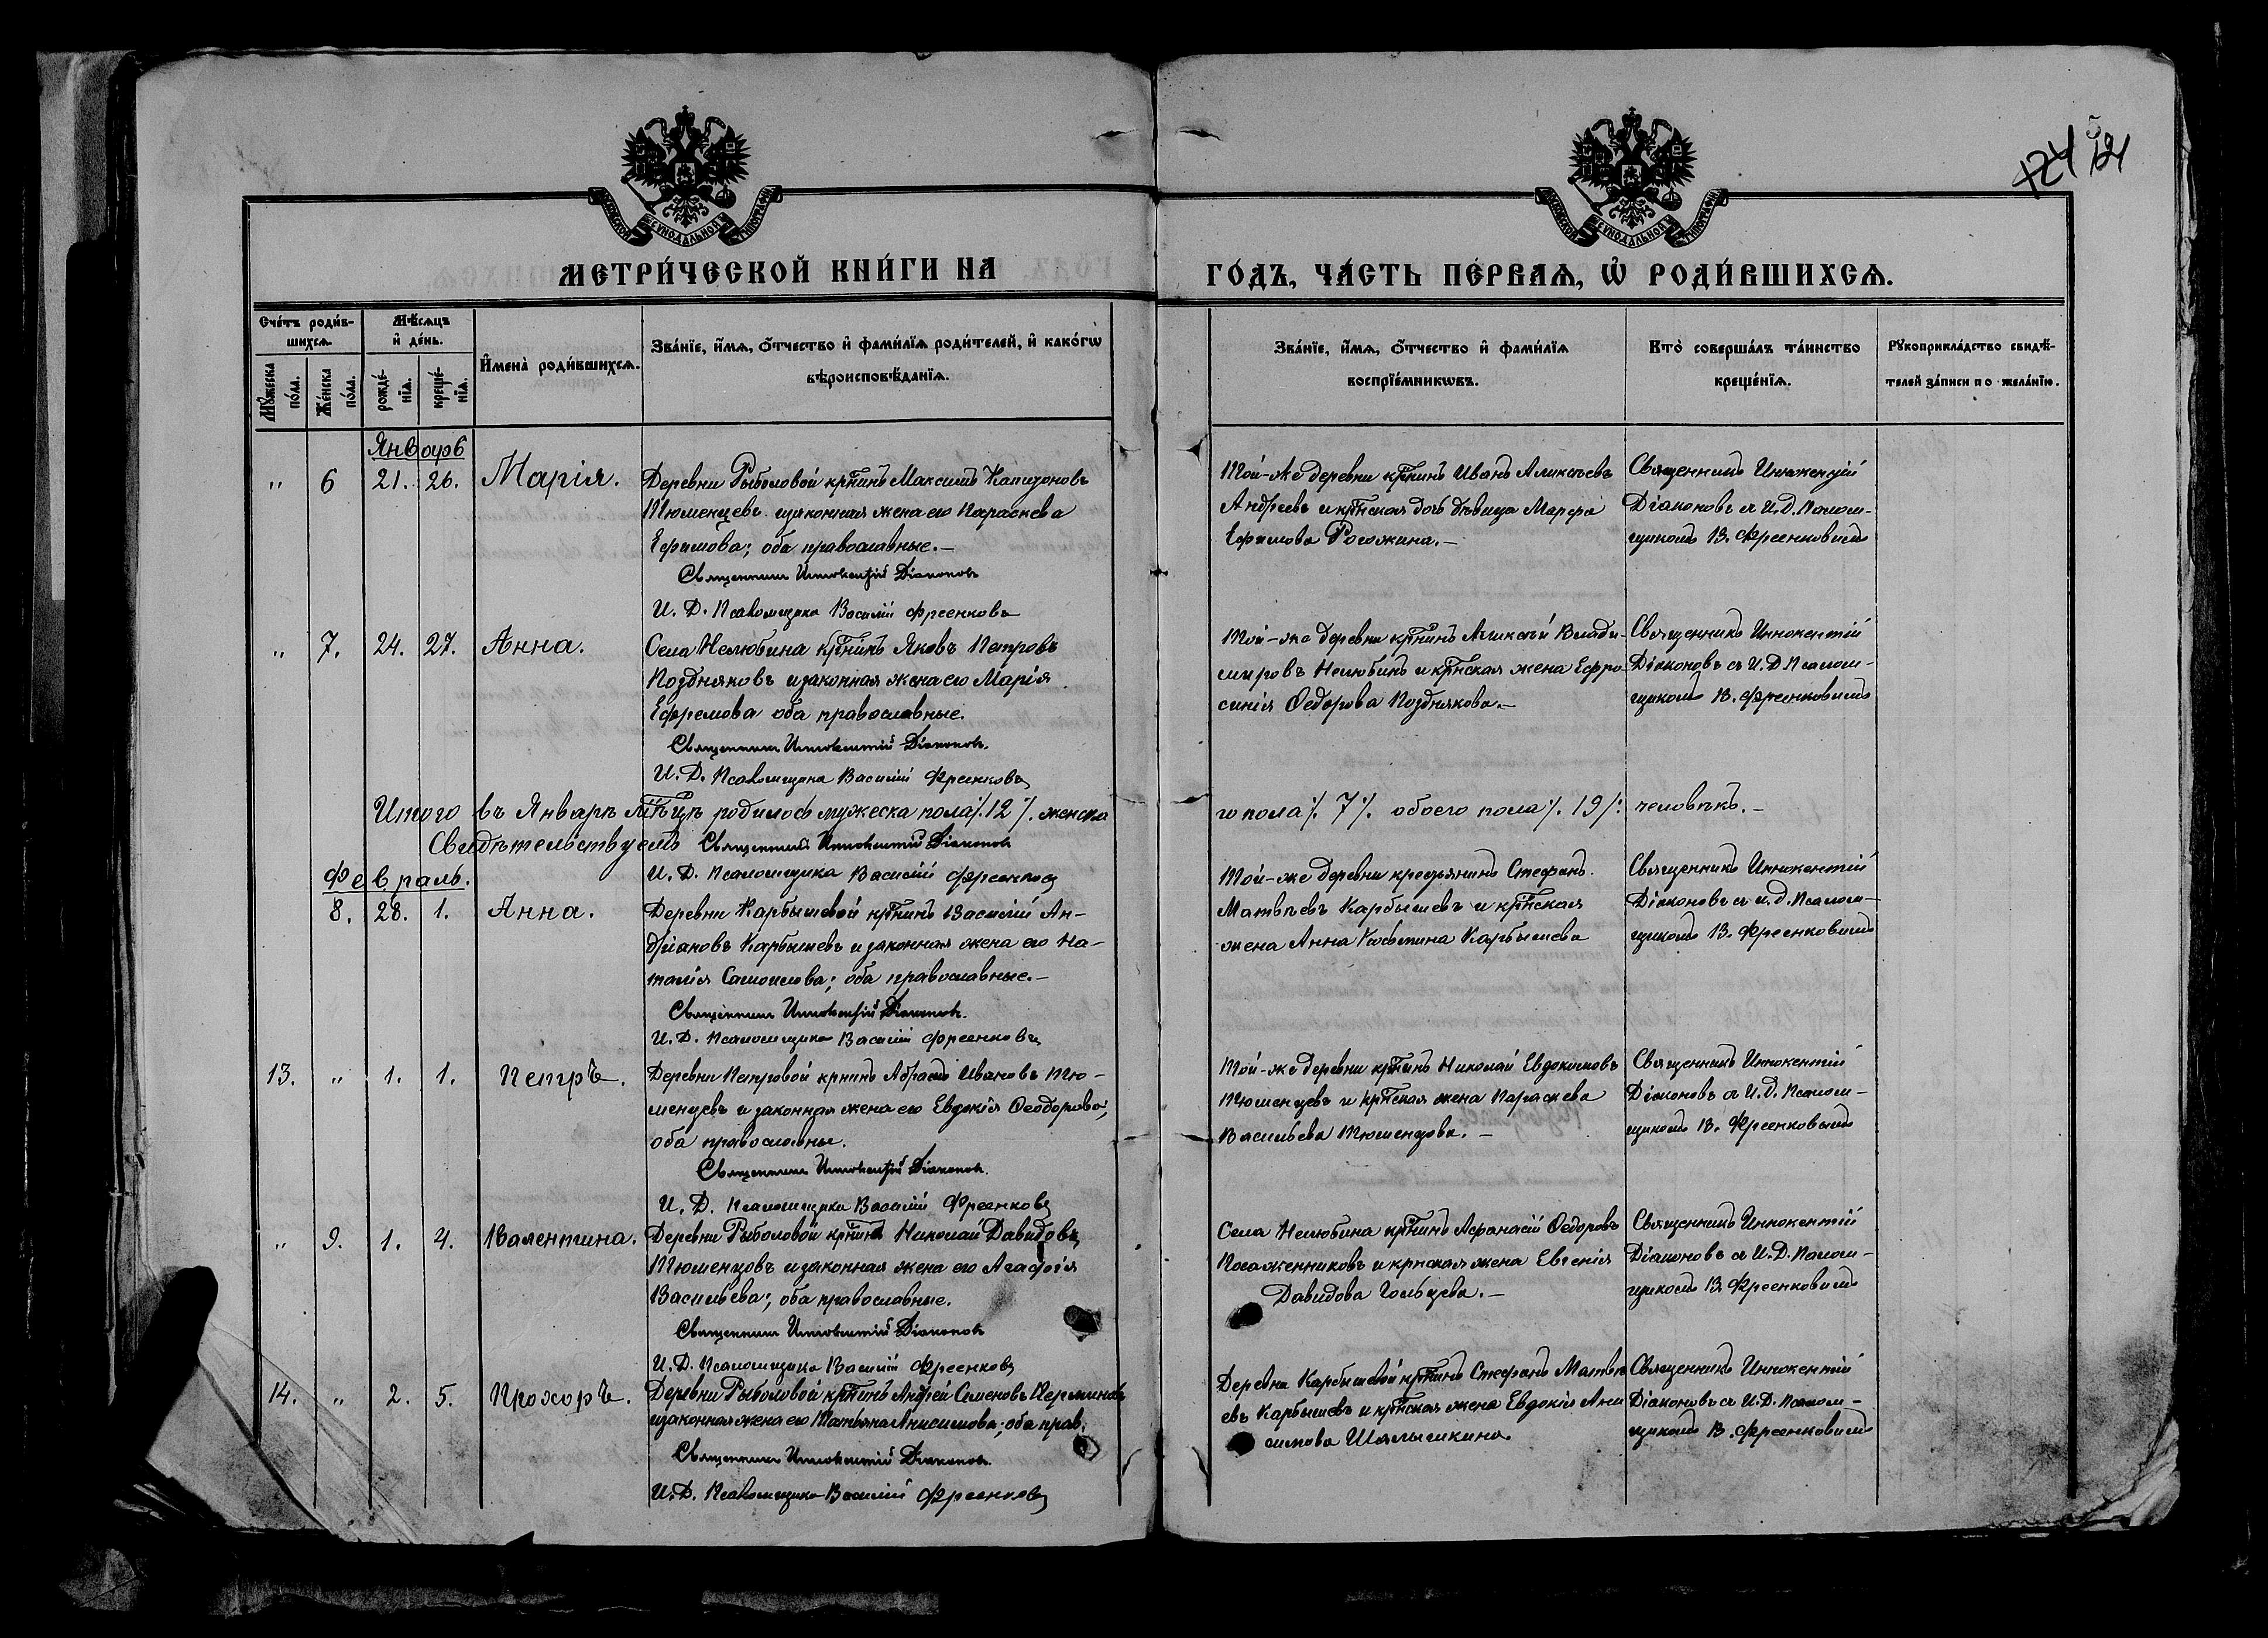 124 121
5
МОСКОВСКОЙ СѴНОДАЛЬНОЙ ТИПОГРАФІИ
МОСКОВСКОЙ СѴНОДАЛЬНОЙ ТИПОГРАФІИ
МЕТРИ́ЧЕСКОЙ КНИ́ГИ НА ГО́ДЪ, ЧА́СТЬ ПЕ́РВАѦ, Ѡ҆ РОДИ́ВШИХСѦ.
Сче́тъ роди́в-
шихсѧ.
Мꙋ́жеска
по́ла.
Же́нска
по́ла.
Мѣ́сѧцъ
и҆ де́нь.
рожде́-
нїѧ.
креще́-
нїѧ.
И҆мена̀ роди́вшихсѧ.
Зва́нїе, и҆́мѧ, ѻ҆́тчество и҆ фами́лїѧ роди́телей, и҆ како́гѡ
вѣроисповѣ́данїѧ.
Зва́нїе, и҆́мѧ, ѻ҆́тчество и҆ фами́лїѧ
воспрїе́мникѡвъ.
Кто̀ соверша́лъ та́инство
креще́нїѧ.
Рꙋкоприкла́дство свидѣ́-
телей за́писи по жела́нїю.
Январь
" 6 21. 26. Марія.
Деревни Рыболовой кр̅тнинъ Максимъ Капитоновъ
Тюменцевъ и законная жена его Параскева
Ефимова; оба православные.—
Священникъ Иннокентій Діаконовъ
И. Д. Псаломщика Василій Фреенковъ
Той-же деревни кр̅тнинъ Иванъ Алексѣевъ
Андреевъ и кр̅тнская дочь дѣвица Марѳа
Ефимова Рогожина.—
Священникъ Иннокентій
Діаконовъ съ И. Д. Псалом-
щикомъ В. Фреенковымъ
" 7. 24. 27. Анна.
Села Нелюбина кр̅тнинъ Яковъ Петровъ
Поздняковъ и законная жена его Марія
Ефремова оба православные.
Священникъ Иннокентій Діаконовъ.
И. Д. Псаломщика Василій Фреенковъ
Той-же деревни кр̅тнинъ Алексѣй Влади-
міровъ Нелюбинъ и кр̅тнская жена Ефро-
синія Ѳедорова Позднякова.—
Священникъ Иннокентій
Діаконовъ съ И. Д. Псалом-
щикомъ В. Фреенковымъ
Итого въ Январѣ м̅ѣцѣ родилось мужеска пола ⁒ 12 ⁒ женска
го пола ⁒ 7 ⁒ обоего пола ⁒ 19 ⁒ человѣкъ.—
Свидѣтельствуемъ Священникъ Иннокентій Діаконовъ
И. Д. Псаломщика Василій Фреенковъ
Февраль.
8. 28. 1. Анна.
Деревни Карбышевой кр̅тнинъ Василій Ан-
дріановъ Карбышевъ и законная жена его На-
талія Самоилова; оба православные.—
Священникъ Иннокентій Діаконовъ.
И. Д. Псаломщика Василій Фреенковъ
Той-же деревни крестьянинъ Стефанъ
Матвѣевъ Карбышевъ и кр̅тнская
жена Анна Карбышева
Священникъ Иннокентій
Діаконовъ съ и. д. Псалом-
щикомъ В. Фреенковымъ
13. " 1. 1. Петръ.
Деревни Петровой крнинъ Абрамъ Ивановъ Тю-
менцевъ и законная жена его Евдокія Ѳеодорова;
оба православны.
Священникъ Иннокентій Діаконовъ.
И. Д. Псаломщика Василій Фреенковъ
Той-же деревни кр̅тнинъ Николай Евдокимовъ
Тюменцевъ и кр̅тнская жена Параскева
Васильева Тюменцова.—
Священникъ Иннокентій
Діаконовъ съ И. Д. Псалом-
щикомъ В. Фреенковымъ
" 9. 1. 4. Валентина.
Деревни Рыболовой кр̅тнинъ Николай Давидовъ
Тюменцовъ и законная жена его Агафія
Васильева; оба православные.
Священникъ Иннокентій Діаконовъ
И. Д. Псаломщика Василій Фреенковъ
Села Нелюбина кр̅тнинъ Афанасій Ѳедоровъ
Посаженниковъ и крнская жена Евгенія
Давидова Гольцева.—
Священникъ Иннокентій
Діаконовъ съ И. Д. Псалом-
щикомъ В. Фреенковымъ
14. " 2. 5. Прохоръ.
Деревни Рыболовой кр̅тнинъ Андрей Семеновъ Перминовъ
и законная жена его Татьяна Анисимова; оба прав.
Священникъ Иннокентій Діаконовъ.
И. Д. Псаломщика Василій Фреенковъ
Деревни Карбышевой кр̅тнинъ Стефанъ Матвѣ
евъ Карбышевъ и кр̅тнская жена Евдокія Ани
симова Шалышкина
Священникъ Иннокентій
Діаконовъ съ И. Д. Псалом-
щикомъ В. Фреенковымъ